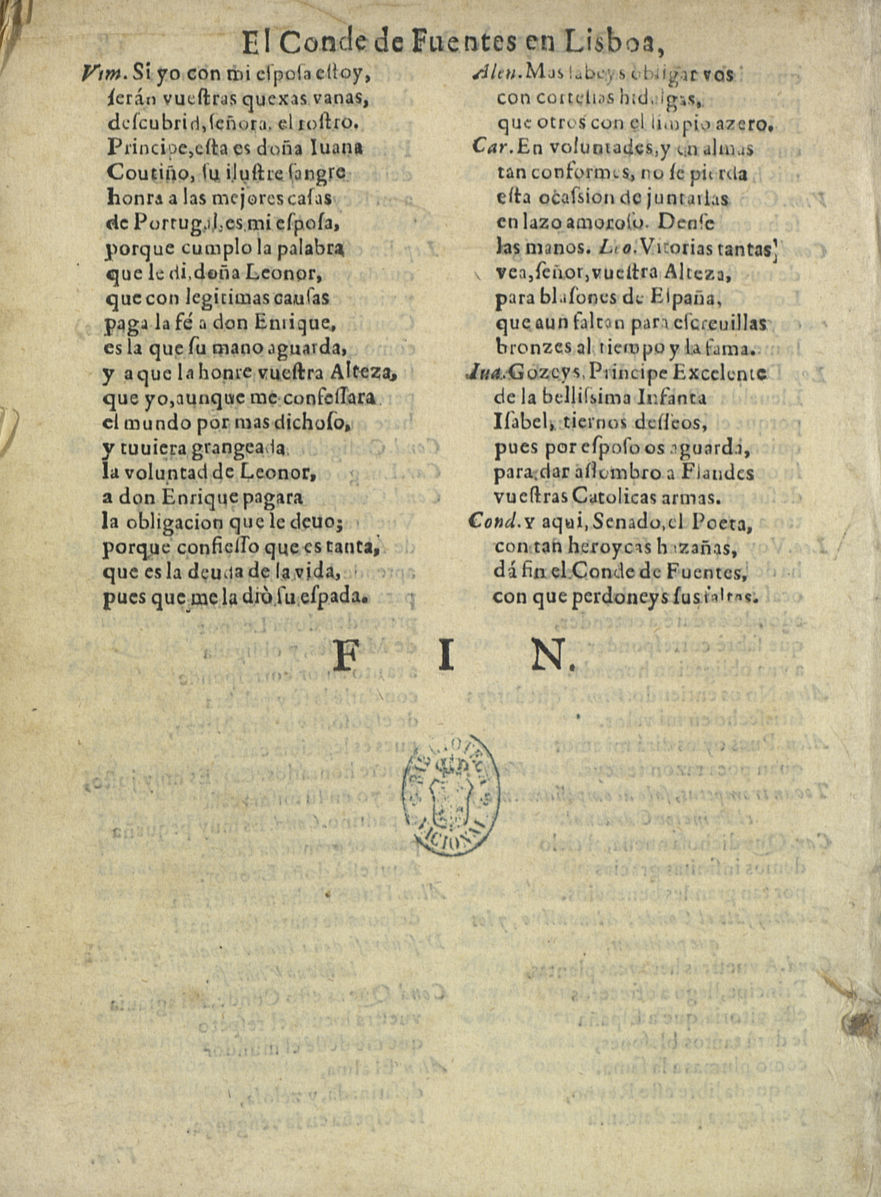 El Conde de Fuentes en Lisboa,
Vim. Si yo con mi eſpoſa eſtoy,
ſerán vueſtras quexas vanas,
deſcubrid, ſeñora, el roſtro.
Principe, eſta es doña Iuana
Coutiño, ſu iluſtre ſangre
honra a las mejores caſas
de Portugal, es mi eſpoſa,
porque cumplo la palabra
que le di, doña Leonor,
que con legitimas cauſas
paga la fé a don Enrique,
es la que ſu mano aguarda,
y a que la honre vueſtra Alteza,
que yo, aunque me confeſſara
el mundo por mas dichoſo,
y tuuiera grangeada
la voluntad de Leonor,
a don Enrique pagara
la obligacion que le deuo;
porque confieſſo que es tanta,
que es la deuda de la vida,
pues que me la diò ſu eſpada.
Alen. Mas ſabeys obligar vos
con corteſias hidalgas,
que otros con el limpio azero.
Car. En voluntades, y en almas
tan conformes, no ſe pierda
eſta ocaſsion de juntarlas
en lazo amoroſo. Denſe
las manos. Leo. Vitorias tantas,
vea, ſeñor, vueſtra Alteza,
para blaſones de Eſpaña,
que aun faltan para eſcreuillas
bronzes al tiempo y la fama.
Iua. Gozeys, Principe Excelente
de la belliſsima Infanta
Iſabel, tiernos deſſeos,
pues por eſpoſo os aguarda,
para dar aſſombro a Flandes
vueſtras Catolicas armas.
Cond. Y aqui, Senado, el Poeta,
con tan heroycas hazañas,
dá fin el Conde de Fuentes,
con que perdoneys ſus faltas.
F I N.